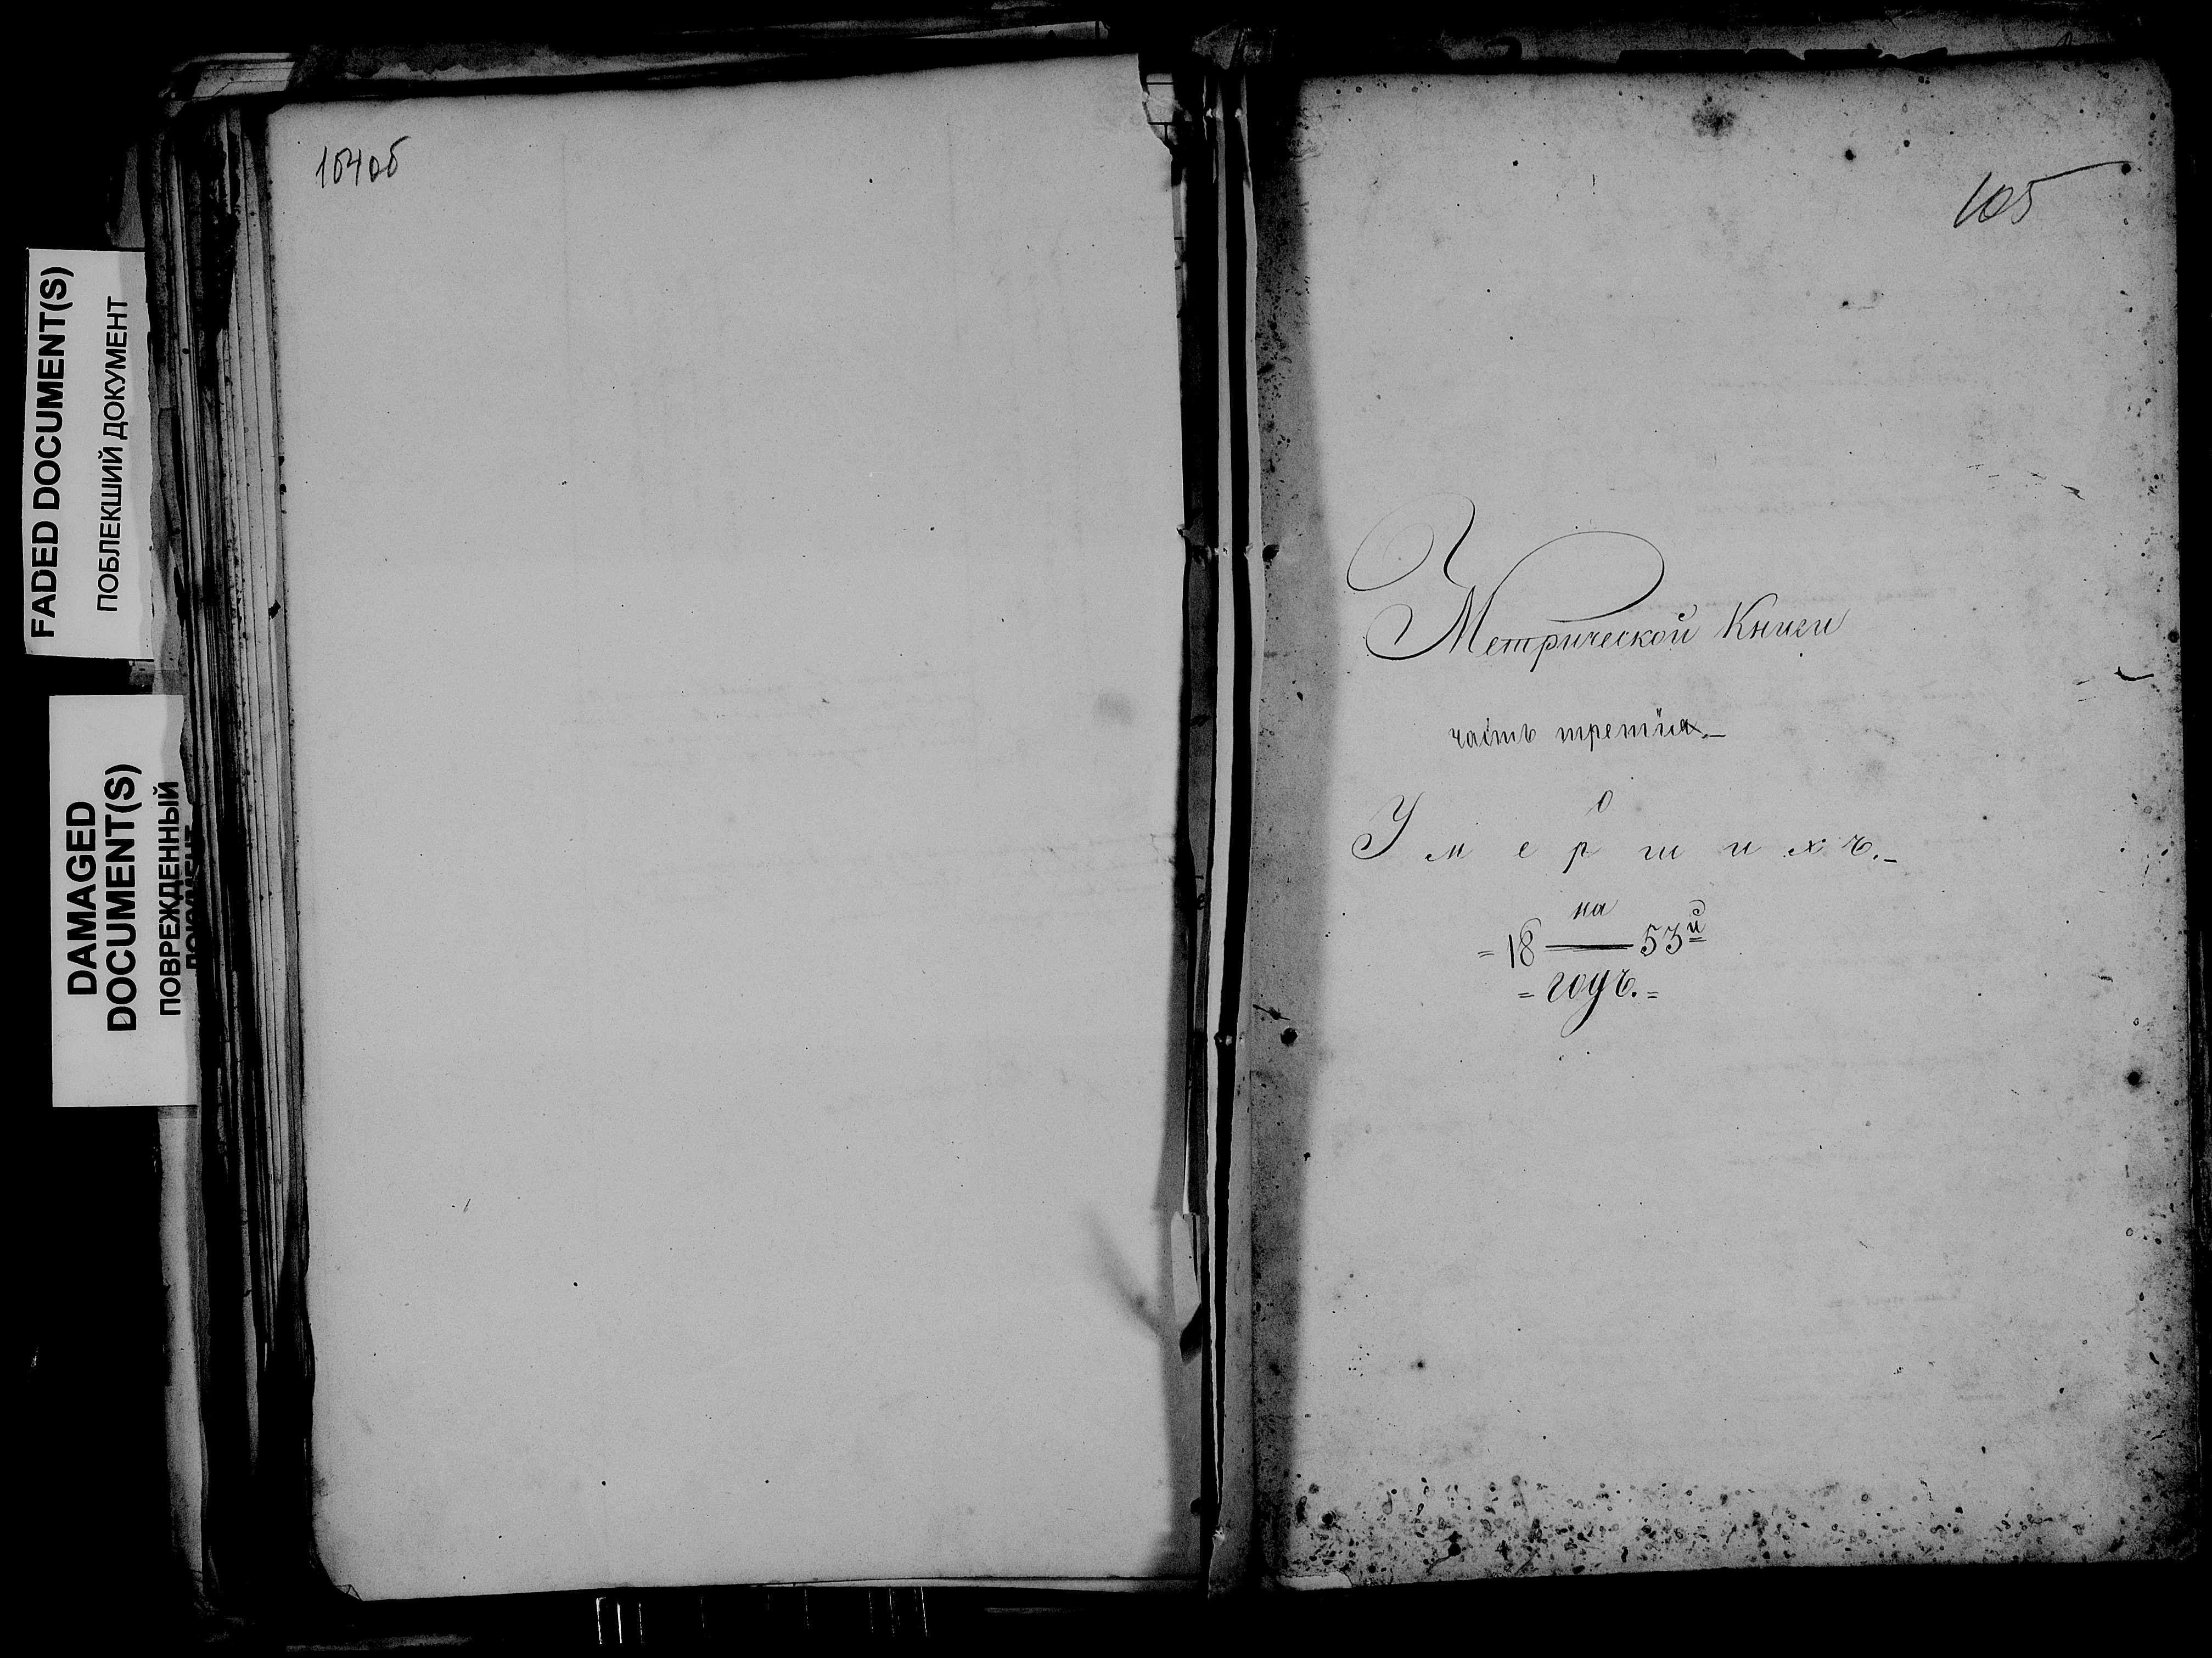 FADED DOCUMENT(S)
ПОБЛЕКШИЙ ДОКУМЕНТ
DAMAGED
DOCUMENT(S)
ПОВРЕЖДЕННЫЙ
ДОКУМЕНТ
104об
105
Метрической Книги
часть третія.
о
Умершихъ.
на
= 18 — 53й
= годъ. =